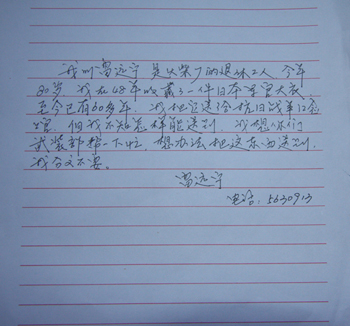 我叫雷远宁 是火柴厂的退休工人 今年
80岁 我在48年收藏了一件日本军官大衣
至今已有60多年 我把它送给抗日战争纪念
馆 但我不知怎样能送到 我想你们
武装部帮一下忙 想办法把这东西送到
我分文不要。
雷远宁
电话: 5630913